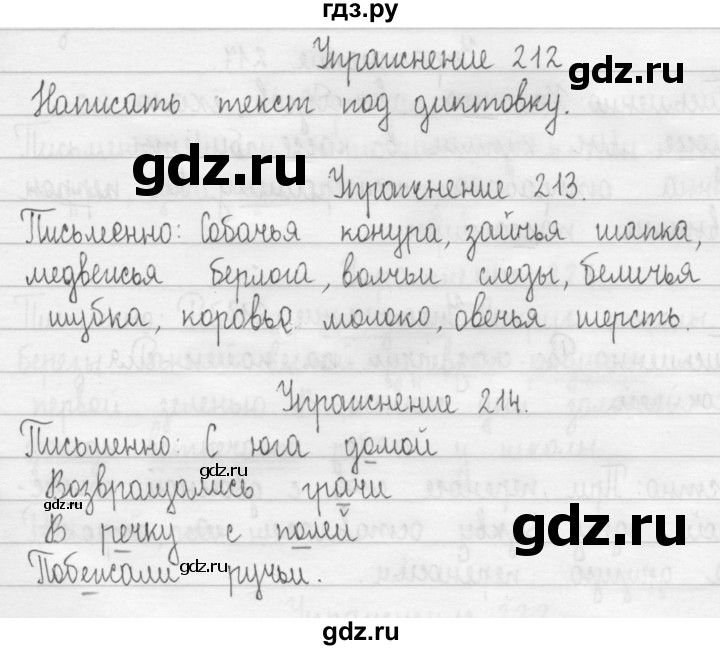 гдз.ру
Упражнение 212
gdz.ru
Написать текст под диктовку.
gdz.ru
Упражнение 213.
Письменно: Собачья конура, зайчья шапка,
медвежья берлога, волчьи следы, беличья
шубка, коровье молоко, овечья шерсть.
Упражнение 214.
Письменно: С юга домой
gdz.ru
Возвращались грачи
gdz.ru
В речку с полей
gdz.ru
Побежали ручьи.
gdz.ru
gdz.ru